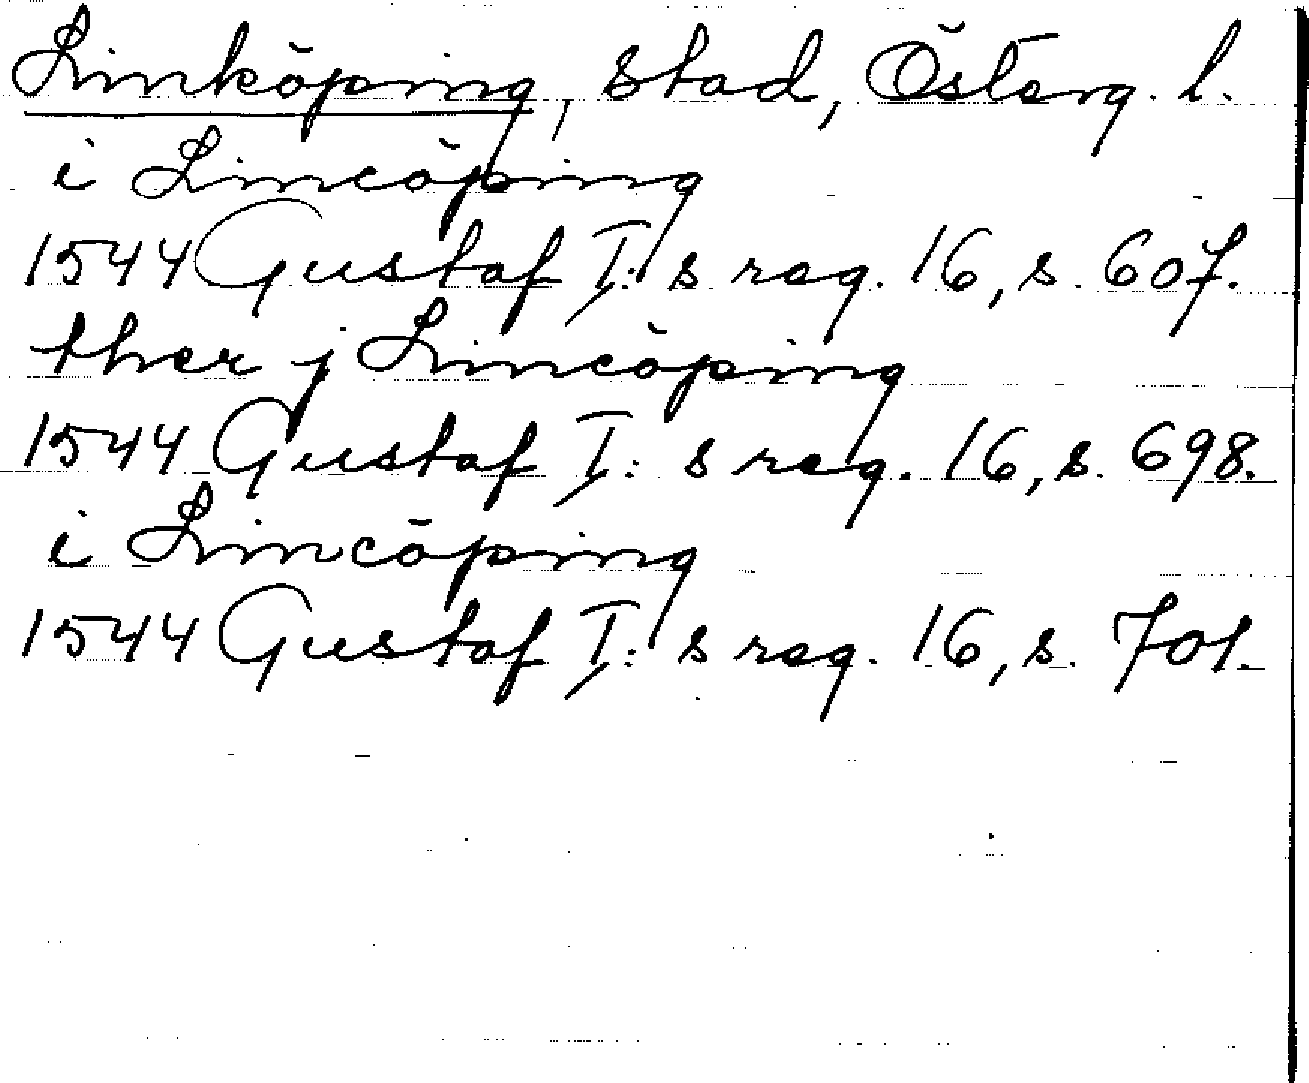 Linköping, stad, Österg. l.
i Lincöping
1544 Gustaf I:s reg. 16, s. 607.
ther j Lincöping
1544 Gustaf I:s reg. 16, s. 698.
i Lincöping
1544 Gustaf I:s reg. 16, s. 701.